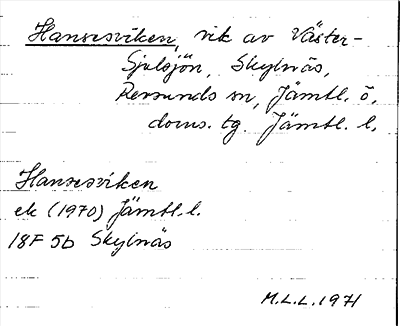 Hansesviken, vik av Väster-
Sjulsjön, Skylnäs,
Revsunds sn, Jämtl. ö,
doms. tg. Jämtl. l.
Hansesviken
ek (1970) Jämtl. l.
18F 5b Skylnäs
M.L.L. 1971